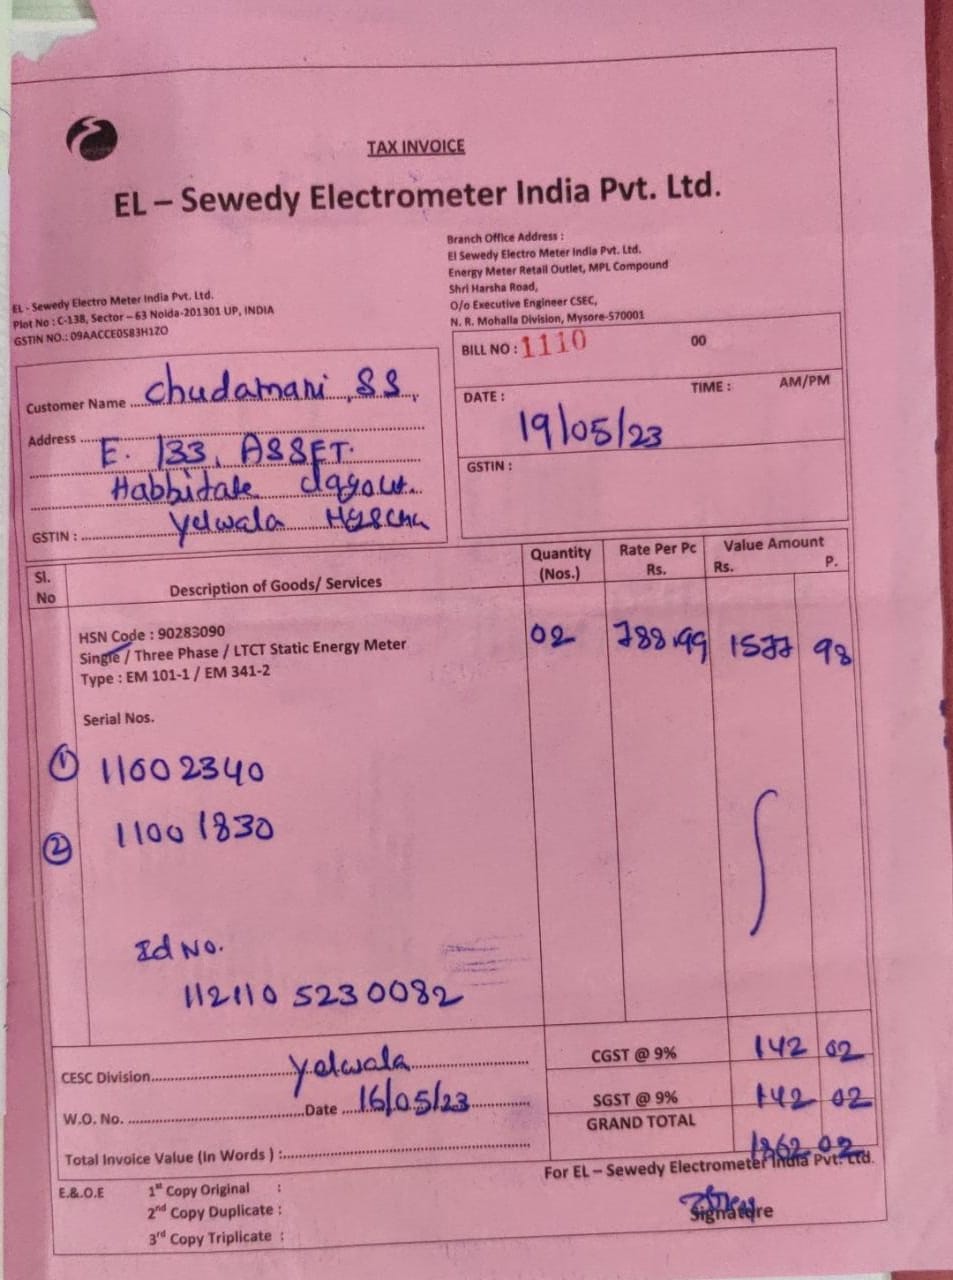 TAX INVOICE
EL – Sewedy Electrometer India Pvt. Ltd.
EL - Sewedy Electro Meter India Pvt. Ltd.
Plot No : C-138, Sector – 63 Noida-201301 UP, INDIA
GSTIN NO.: 09AACCE0583H1ZO
Branch Office Address :
El Sewedy Electro Meter India Pvt. Ltd.
Energy Meter Retail Outlet, MPL Compound
Shri Harsha Road,
O/o Executive Engineer CSEC,
N. R. Mohalla Division, Mysore-570001
Customer Name Chudamani, SS,
Address E. 133, ASSET.
Habbitate layout
Yelwala
GSTIN :
BILL NO : 1110 00
DATE : TIME : AM/PM
19/05/23
GSTIN :
Sl. No Description of Goods/ Services Quantity (Nos.) Rate Per Pc Rs. Value Amount Rs. P.
HSN Code : 90283090
Single / Three Phase / LTCT Static Energy Meter 02 788.99 1577 98
Type : EM 101-1 / EM 341-2
Serial Nos.
① 11002340
② 11001830
Id No.
112110 5230082
CESC Division Yelwala
W.O. No. Date 16/05/23
Total Invoice Value (In Words ) :
CGST @ 9% 142 02
SGST @ 9% 142 02
GRAND TOTAL 1862 02
For EL – Sewedy Electrometer India Pvt. Ltd.
Signature
E.&.O.E 1st Copy Original :
2nd Copy Duplicate :
3rd Copy Triplicate :